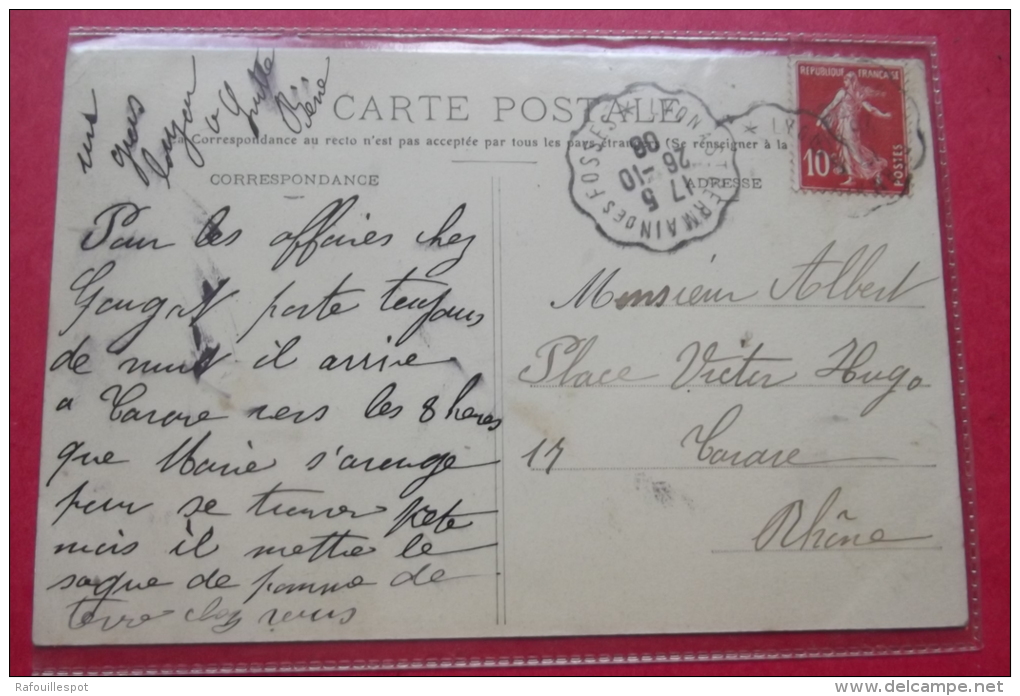 une
gros
à Lucette
Réné
CARTE POSTALE
La Correspondance au recto n'est pas acceptée par tous les pays étrangers (Se renseigner à la
CORRESPONDANCE
ADRESSE
REPUBLIQUE FRANÇAISE
10
POSTES
LYON A ST GERMAIN DES FOSSES
17 5
26 -10
08
LYON
Pour les affaires chez
porte toujours
de nuit il arrive
a Tarare vers les 8 heres
que Marie s'arenge
pour se trouver prete
mais il mettra le
saque de pomme de
terre chez vous
Monsieur Albert
Place Victor Hugo
17 Tarare
Rhône
Rafouillespot
delcampe.net